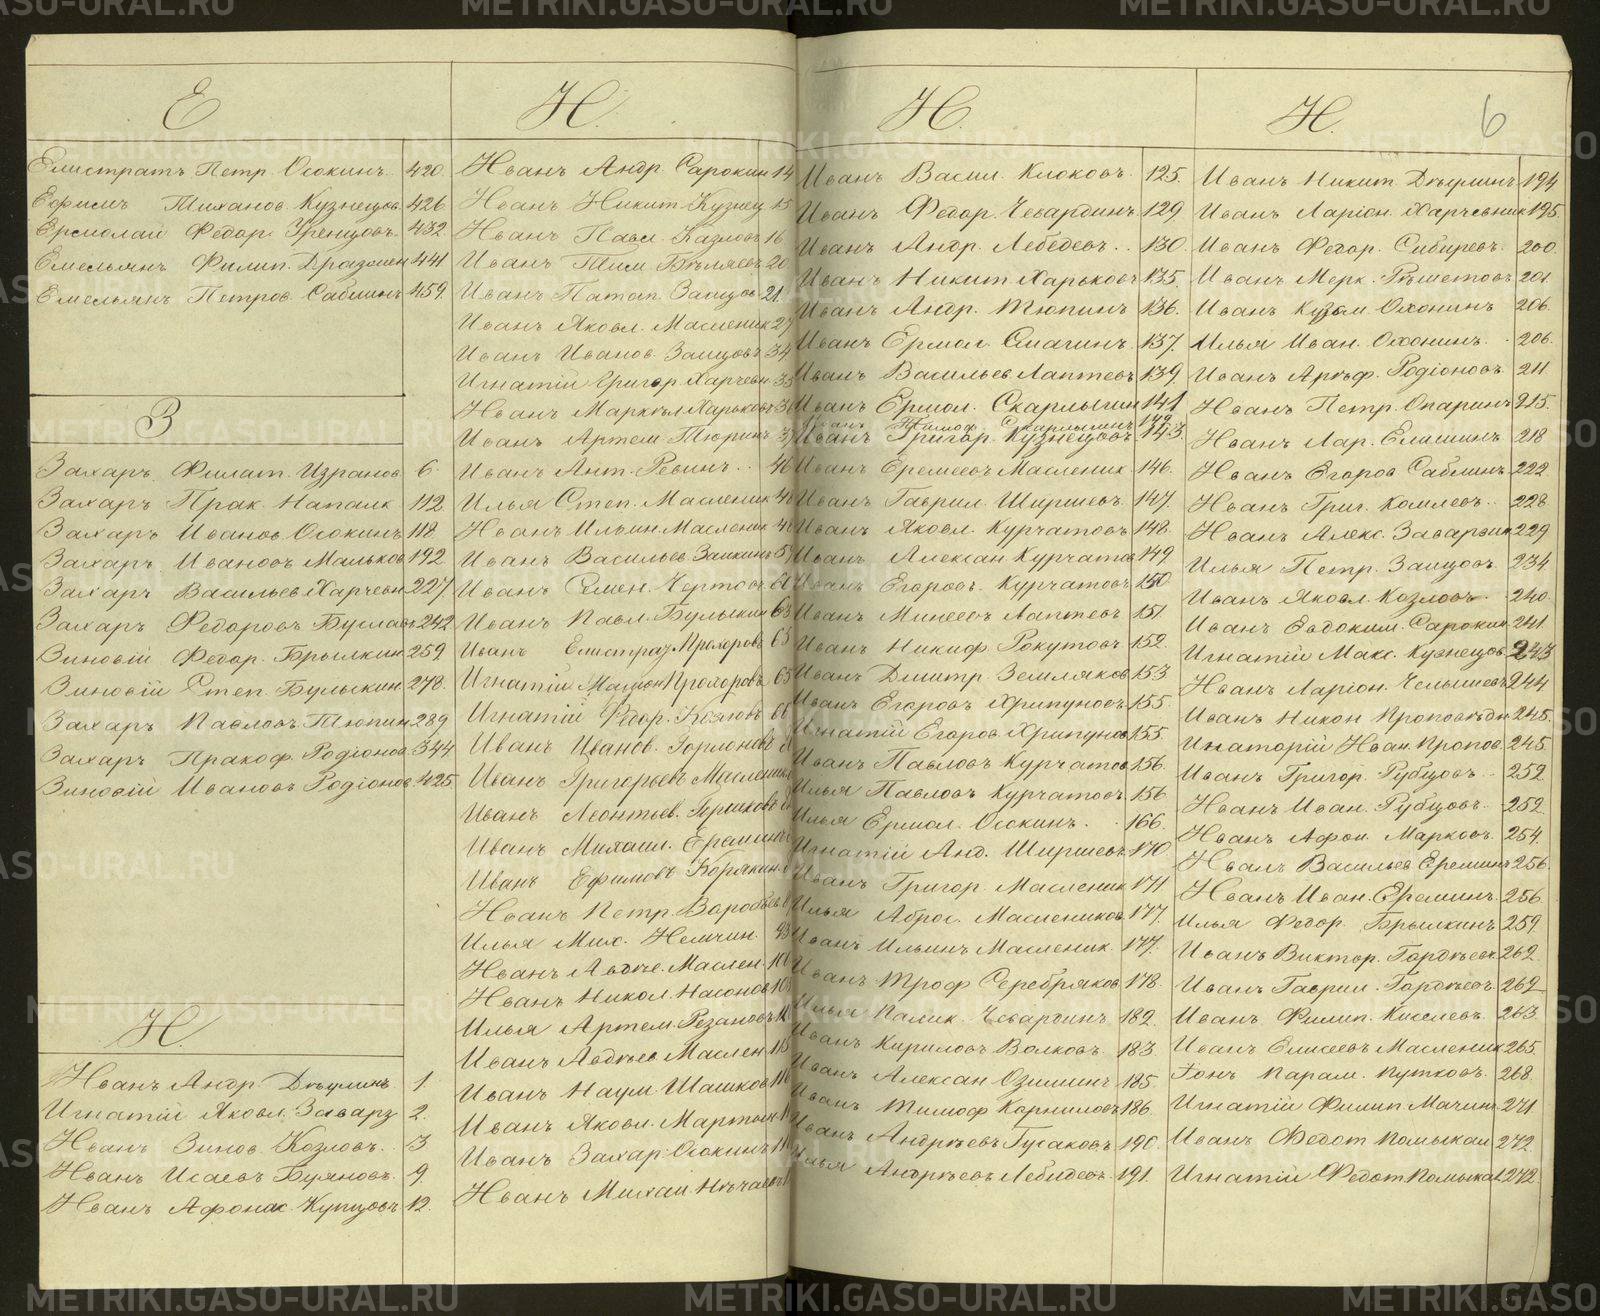 Е
Елистратъ Петр. Осокинъ 420.
Ефимъ Тиханов. Кузнецовъ 426
Ермолай Федор. 432
Емельянъ Филип. 441
Емельянъ Петров. Саблинъ 459.
З
Захаръ Филат. Изранов 6.
Захаръ Прак. 112
Захаръ Иванов. Осокинъ 118.
Захаръ Ивановъ Мальков 192
Захаръ Васильев Харчевн 227
Захаръ Федоровъ Буслаевъ 242
Зиновій Федор. Брылкин 259
Зиновій Степ. Булыкин 278.
Захаръ Павловъ Тюпин 289
Захаръ Пракоф. Родіонов 344
Зиновій Ивановъ Родіонов 425.
И.
Иванъ Андр. Дѣулинъ 1.
Игнатій Яковл. Заварз 2.
Иванъ Зинов. Козловъ. 3
Иванъ Исаевъ Буяновъ. 9.
Иванъ Афонас Купцовъ 12.
И.
Иванъ Андр. Сарокин 14
Иванъ Никит. Кузнец 15
Иванъ Павл. Казловъ 16
Иванъ Тим. Бѣляевъ 20
Иванъ Патап. Заицов 21.
Иванъ Яковл. Масленик 27
Иванъ Иванов. Заицовъ 34
Игнатій Григор. Харчевн 35
Иванъ Маркѣл. Харьковъ
Иванъ Артем. Тюринъ
Иванъ Ант. Ревинъ. 46
Илья Степ. Масленик
Иванъ Ильин. Масленик
Иванъ Васильев. Заикинъ
Иванъ Семен. Чертовъ
Иванъ Павл. Булыкин 63
Иванъ Елистрат. Прохоровъ 65
Игнатій Прохоровъ 65
Игнатій Федор. Козловъ 66
Иванъ Иванов. Горлоновъ
Иванъ Григорьевъ Масленик
Иванъ Леонтьев. Горшковъ
Иванъ Михаил. Ереминъ
Иванъ Ефимовъ Корякин
Иванъ Петр. Воробьев
Илья Мих. Немчин. 93
Иванъ Маслен. 100
Иванъ Никол. Насонов
Илья Артем. Резановъ
Иванъ Авдѣев Маслен 115
Иванъ Наум. Шашков 116
Иванъ Яковл. Мартын
Иванъ Захар. Осокинъ
Иванъ Михаи. Нѣчаевъ
И.
Иванъ Васил. Клюковъ. 125.
Иванъ Федор. Чевардинъ. 129
Иванъ Андр. Лебедевъ. 130.
Иванъ Никит. Харьковъ 135.
Иванъ Андр. Тюпинъ 136.
Иванъ Ермол. Смагинъ. 137.
Иванъ Васильев Лаптевъ 139.
Иванъ Ермол. Скарлыгин 141
Иванъ Тимоф. Скарлыгинъ 142
Иванъ Григор. Кузнецовъ 143.
Иванъ Еремеевъ Масленик 146.
Иванъ Гаврил. Ширшевъ. 147.
Иванъ Яковл. Курчатовъ 148.
Иванъ Алексан Курчатов 149
Иванъ Егоровъ. Курчатовъ 150
Иванъ Минеевъ Лаптевъ 151.
Иванъ Никиф. Рокутовъ 152.
Иванъ Дмитр. Земляков 153
Иванъ Егоровъ Хрипуновъ 155.
Игнатій Егоров. Хрипунов 155.
Иванъ Павловъ Курчатов 156.
Илья Павловъ Курчатовъ 156
Илья Ермол. Осокинъ. 166.
Игнатій Анд. Ширшевъ 170
Иванъ Григор. Масленик 171
Илья Аброс. Маслеников 177.
Иванъ Ильинъ Масленик. 177.
Иванъ Троф Серебряков 178.
Илья Чевардинъ 182.
Иванъ Кириловъ Волковъ. 183.
Иванъ Алексан Озиминъ 185.
Иванъ Тимоф Корниловъ 186.
Иванъ Андрѣевъ Гусаковъ 190.
Илья Андрѣевъ Лебедевъ. 191.
И.
6
Иванъ Никит. Дѣулинъ 194
Иванъ Ларіон. Харчевник 195.
Иванъ Федор. Сибиревъ. 200.
Иванъ Мерк. Рѣшетовъ 201.
Иванъ Кузьм. Охонинъ 206.
Илья Иван. Охонинъ. 206.
Иванъ Арѣф. Родіоновъ 211
Иванъ Петр. Опаринъ 215.
Иванъ Лар. Елишинъ 218
Иванъ Егоров Саблинъ. 222
Иванъ Григ. Комлевъ. 228
Иванъ Алекс. Заварзин 229
Илья Петр. Заицовъ. 234
Иванъ Яковл. Козловъ. 240.
Иванъ Евдоким. Сарокин 241.
Игнатій Макс. Кузнецов 243
Иванъ Ларіон. Челышевъ 244
Иванъ Никон Проповѣдн 245.
Иванъ. Пропов. 245.
Иванъ Григор. Рубцовъ. 252.
Иванъ Иван. Рубцовъ. 252.
Иванъ Афон. Марковъ. 254.
Иванъ Васильев Ереминъ 256.
Иванъ Иван. Ереминъ. 256.
Илья Федор. Брылкинъ 259.
Иванъ Виктор. Гордѣевъ 262.
Иванъ Гаврил. Гордѣевъ 262
Иванъ Филип. Киселевъ. 263.
Иванъ Елисеевъ Масленик 265.
Парам. Путковъ. 268.
Игнатій Филип. Мачин 271
Иванъ Федот Помыкал 272.
Игнатій Федот Помыкал 272.
METRIKI.GASO-URAL.RU